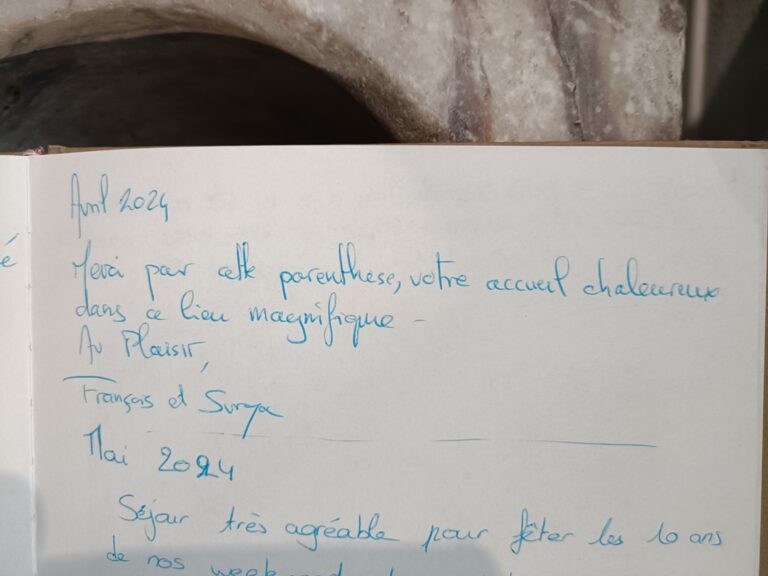 Avril 2024
é
Merci pour cette parenthèse, votre accueil chaleureux
dans ce lieu magnifique -
Au Plaisir,
François et Surya
Mai 2024
Séjour très agréable pour fêter les 10 ans
de nos